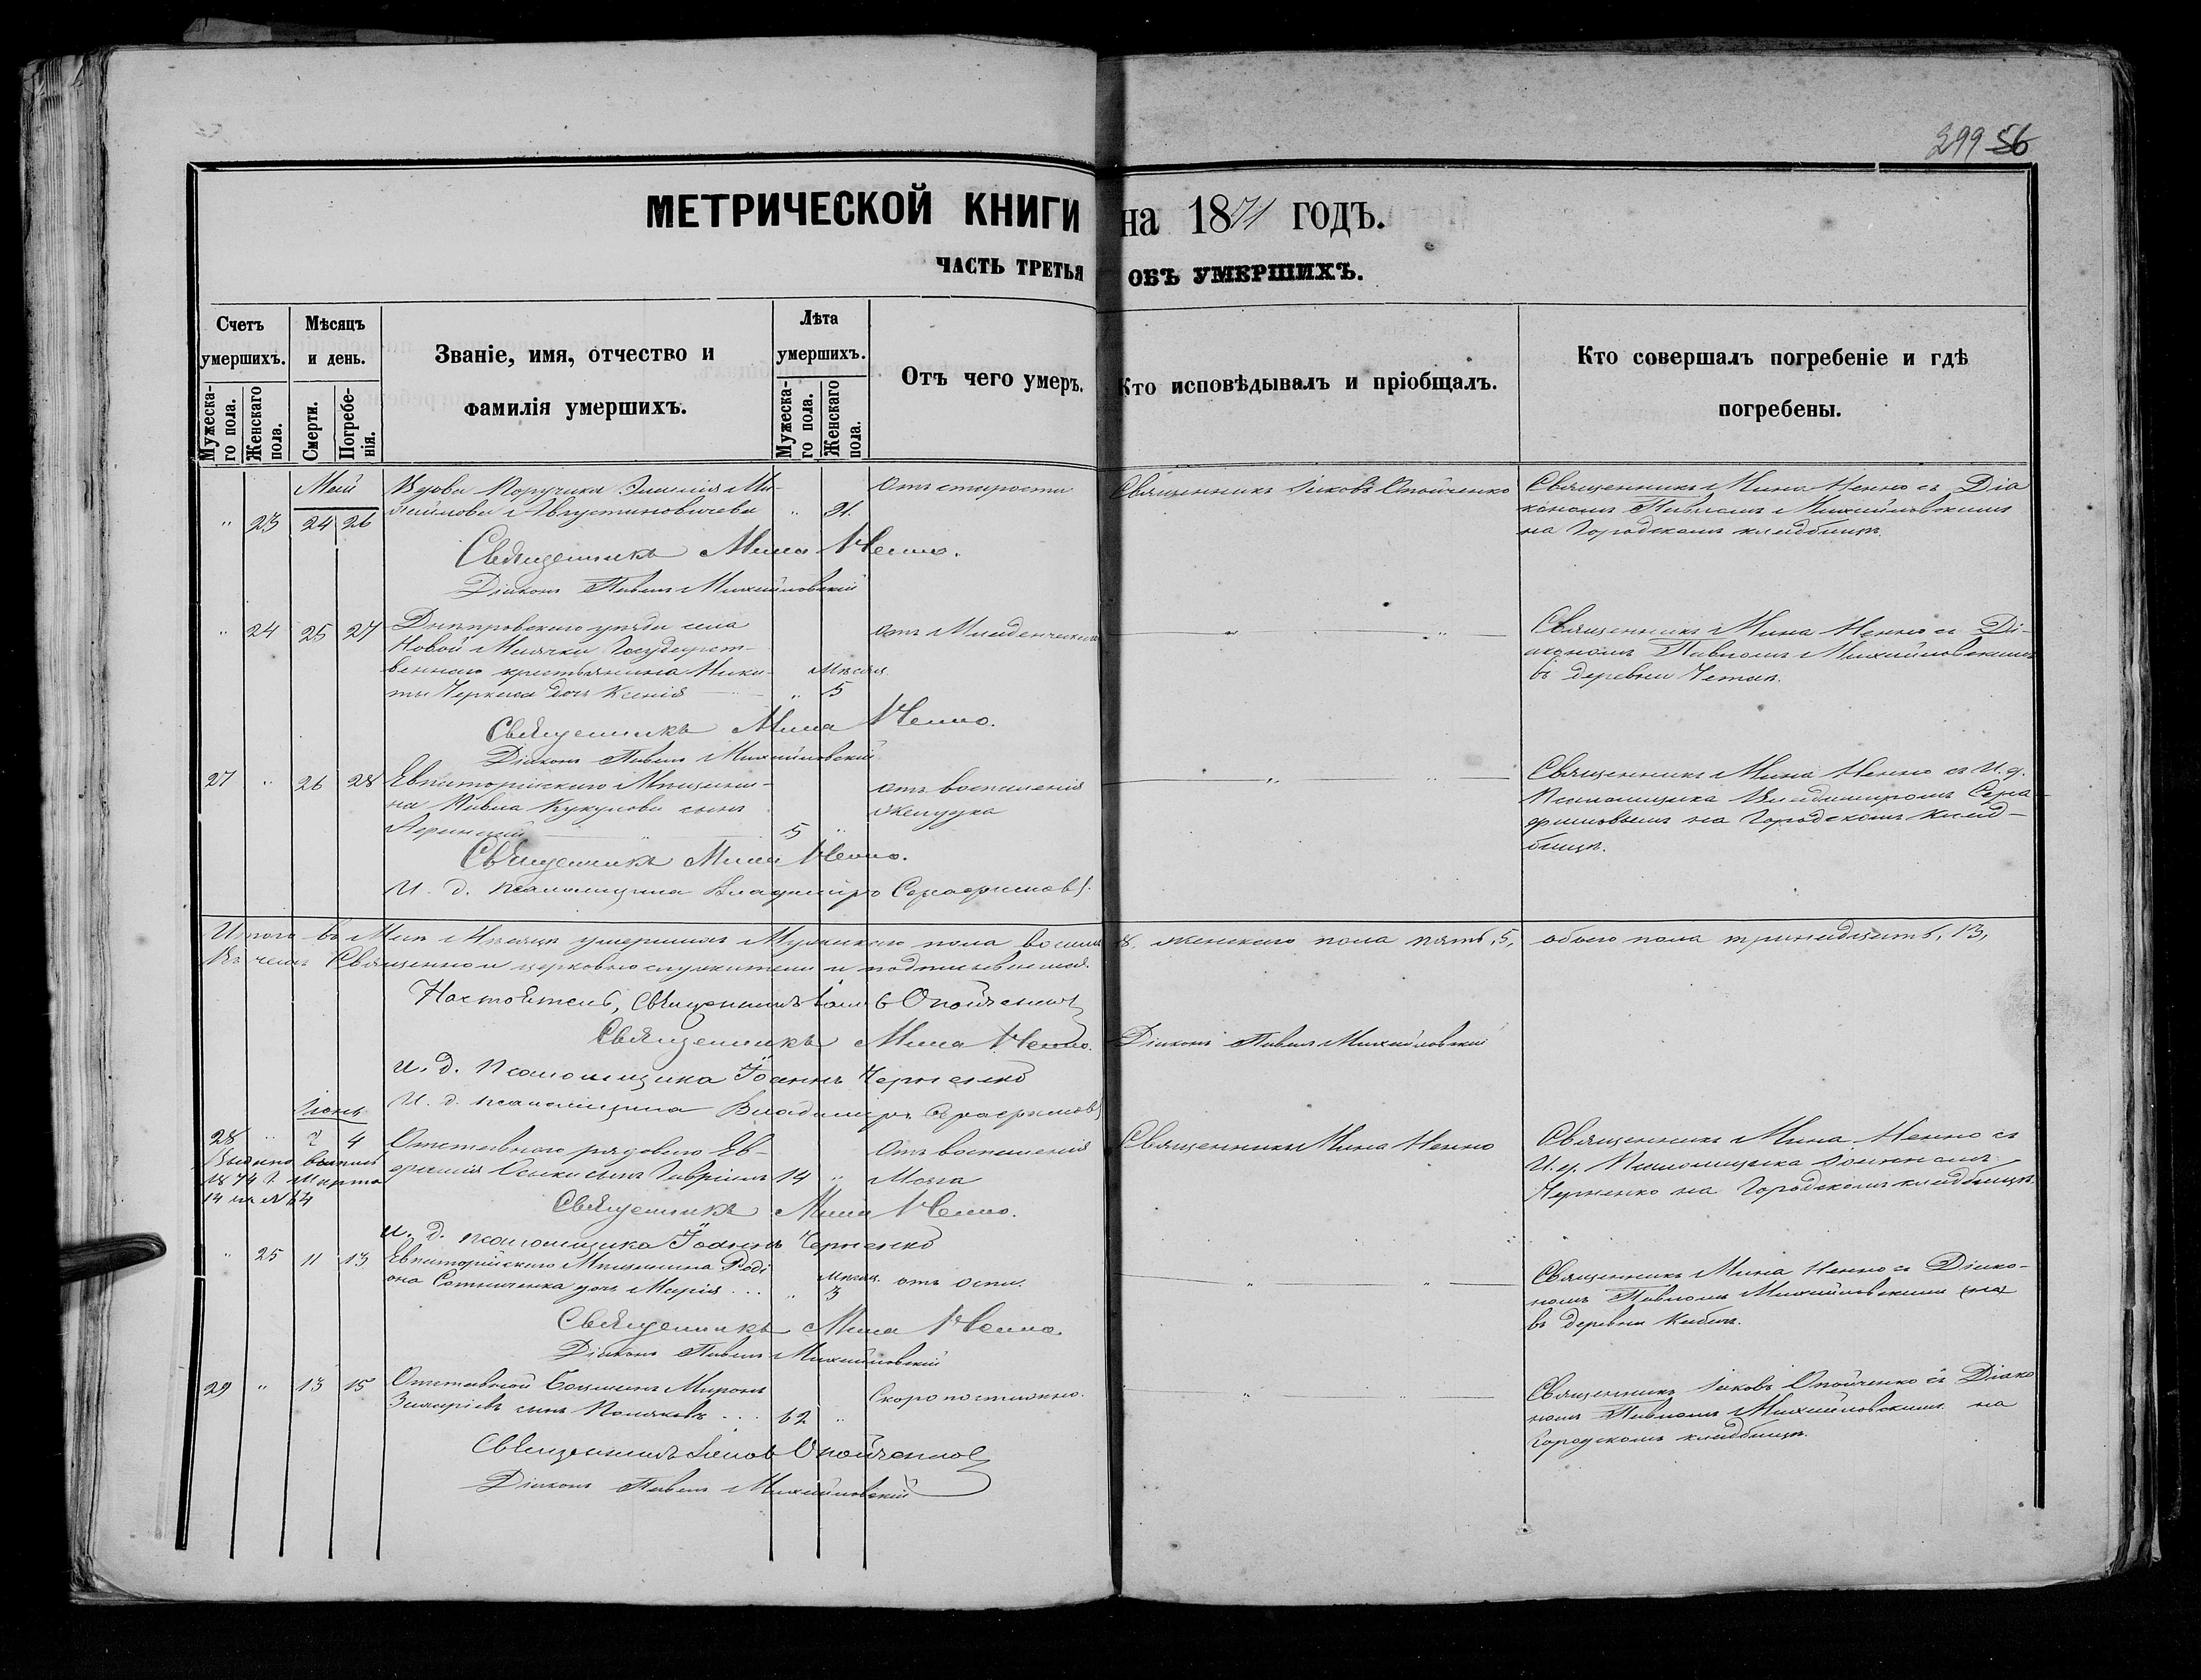 299 56
МЕТРИЧЕСКОЙ КНИГИ на 1871 годъ.
ЧАСТЬ ТРЕТЬЯ ОБЪ УМЕРШИХЪ.
Счетъ умершихъ.
Мужескаго пола.
Женскаго пола.
Мѣсяцъ и день.
Смерти.
Погребенія.
Званіе, имя, отчество и фамилія умершихъ.
Лѣта умершихъ.
Мужескаго пола.
Женскаго пола.
Отъ чего умеръ.
Кто исповѣдывалъ и пріобщалъ.
Кто совершалъ погребеніе и гдѣ погребены.
Май
" 23 24 26
Вдова Поручика Эмилія Ми-
хайлова Августиновичева "
Отъ старости
Священникъ Іаковъ Опойченко
Священникъ Мина Ненно съ Діа
кономъ Павломъ Михайловскимъ
на Городскомъ кладбищѣ.
Священникъ Мина Ненно.
Діаконъ Павелъ Михайловскій
" 24 25 27
Днѣпровскаго уѣзда села
Новой Маячки Государст-
веннаго крестьянина Ники-
ты Черкеса дочь Ксенія " мѣсяц. 5
отъ Младенческой
Священникъ Мина Ненно съ Ді-
акономъ Павломъ Михайловскимъ
въ деревни
Священникъ Мина Ненно.
Діаконъ Павелъ Михайловскій
27 " 26 28
Евпаторійскаго Мѣщани-
на Павла Кукулова сынъ
5 "
отъ воспаленія
Желудка
Священникъ Мина Ненно съ И. д.
Псаломщика Владимиромъ Сера-
фимовымъ на Городскомъ клад-
бищѣ.
Священникъ Мина Ненно.
И. д. псаломщика Владиміръ Серафимовъ.
Итого въ Маѣ Мѣсяцѣ умершихъ Мужескаго пола восемь 8. женскаго пола пять, 5, обоего пола тринадцать, 13,
Въ чемъ Священно и церковно служители и подписываемся.
Настоятель, Священникъ Іаковъ Опойченко
Священникъ Мина Ненно. Діаконъ Павелъ Михайловскій
И. д. Псаломщика Іоаннъ Черненко
И. д. псаломщика Владиміръ Серафимовъ
Іюнь
28 " 2 4
Выдана выпись
1874 г. Марта
14 на № 64
Отставнаго рядоваго Ев-
фимія сынъ Гавріилъ 14 "
Отъ воспаленія
Мозга
Священникъ Мина Ненно
Священникъ Мина Ненно съ
И. д. Псаломщика Іоанномъ
Черненко на Городскомъ кладбищѣ
Священникъ Мина Ненно.
И. д. псаломщика Іоаннъ Черненко
" 25 11 13
Евпаторійскаго Мѣщанина Роді
она Сотниченка дочь Марія ... " мѣсяц. 3
отъ оспы.
Священникъ Мина Ненно съ Діако-
номъ Павломъ Михайловскимъ на
въ деревни
Священникъ Мина Ненно
Діаконъ Павелъ Михайловскій
29 " 13 15
Отставной Боцманъ Миронъ
сынъ Поляковъ ... 62 "
Скоропостижно.
Священникъ Іаковъ Опойченко съ Діако
номъ Павломъ Михайловскимъ на
Городскомъ кладбищѣ.
Священникъ Іаковъ Опойченко
Діаконъ Павелъ Михайловскій